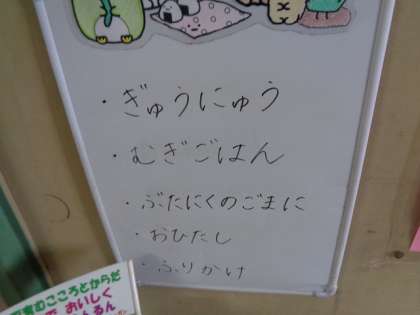 ・ぎゅうにゅう
・むぎごはん
・ぶたにくのごまに
・おひたし
・ふりかけ
むこころとからだ
おいしく